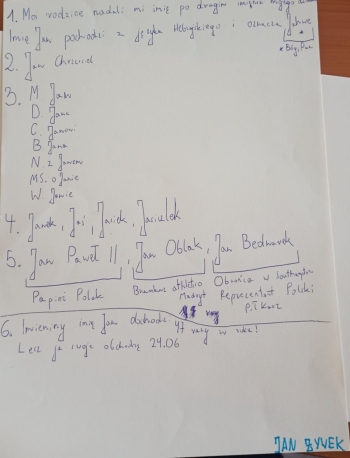 1. Moi rodzice nadali mi imię po drugim imieniu mojego
Imię Jan pochodzi z języka Hebrajskiego i oznacza Jahwe
* Bóg, Pan
2. Jan Chrzciciel
3. M Jan
D. Jana
C. Janowi
B Jana
N z Janem
MS. o Janie
W. Janie
4. Janek, Jaś, Jasiek, Jasiulek
5. Jan Paweł II, Jan Oblak, Jan Bednarek
Papież Polak
Bramkarz athletico
Madryt
Obrońca w
Reprezentant Polski
6. Imieniny imię Jan obchodzi 47 razy w roku!
Lecz ja swoje obchodzę 24.06
JAN ŻYWEK